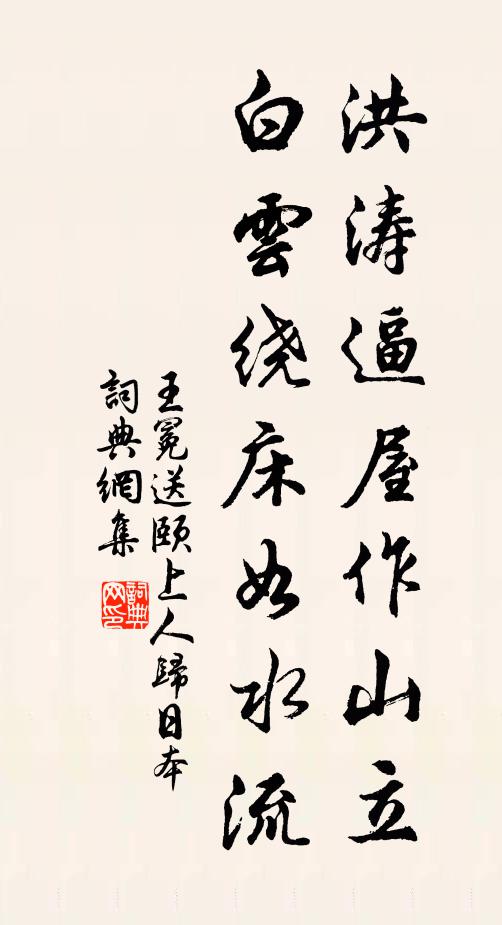 洪涛逼屋作山立
白雲绕床如水流
王冕送頤上人歸日本
詞典網集
詞典网印